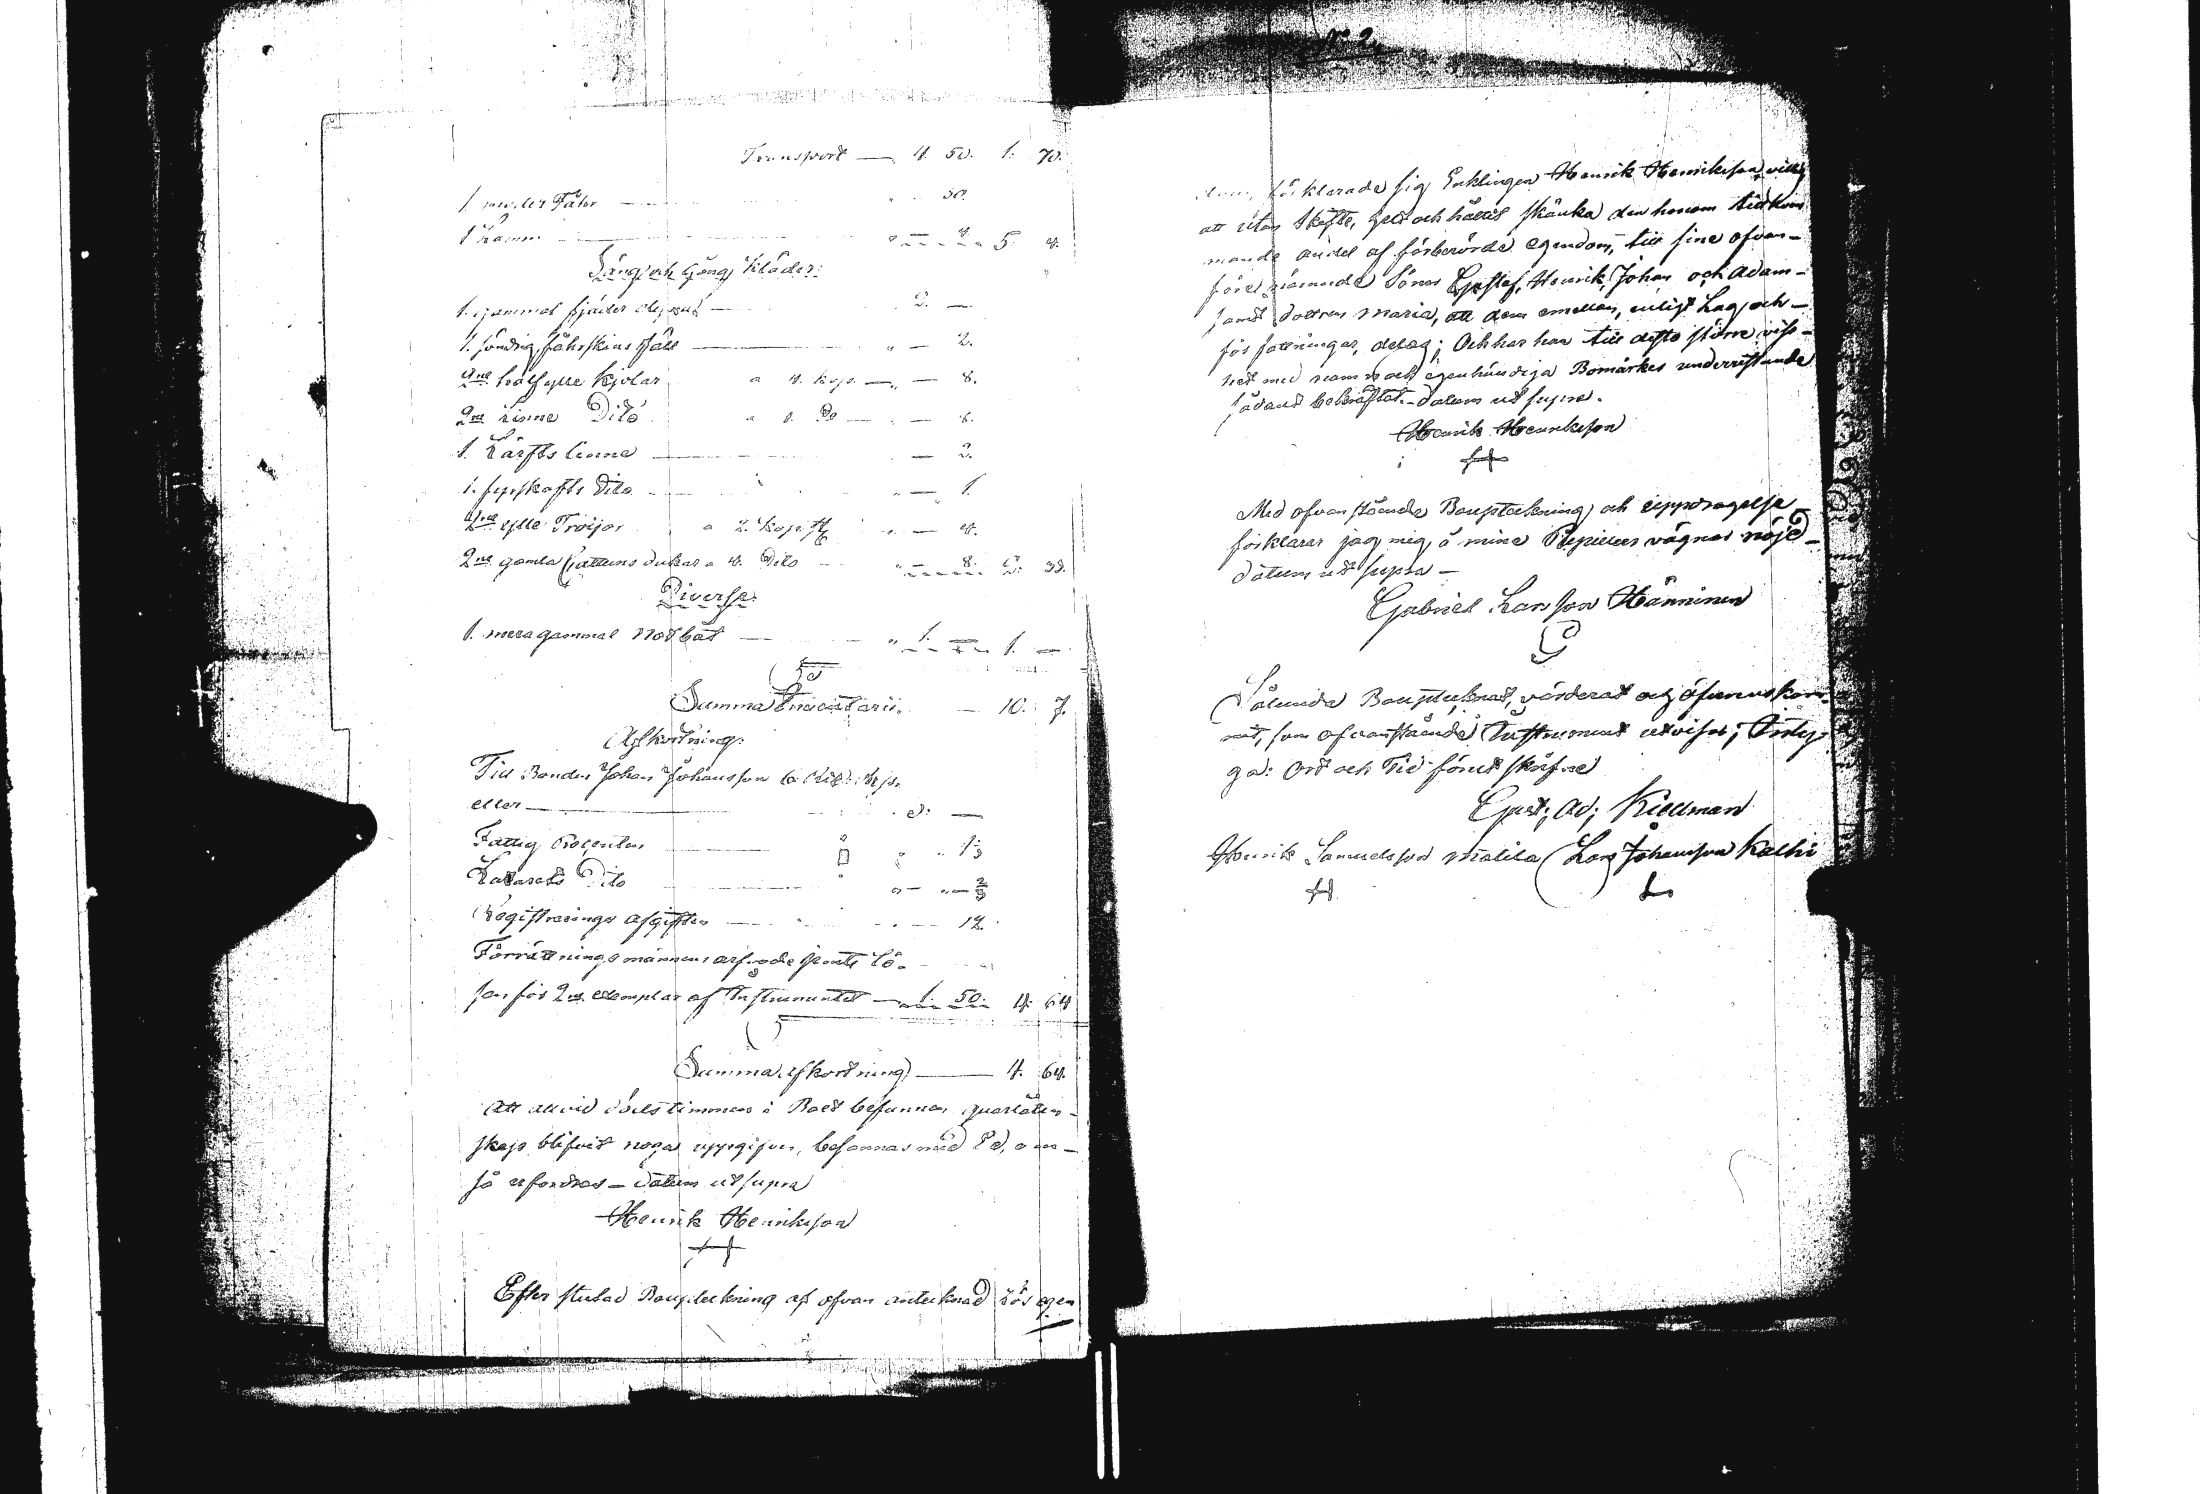 Transport — 4. 50. 1. 70.
1. Fåhr — 50.
1 Lamm — 4. 5. 4.
Säng och Gång kläder:
1. gammal fjäder — 2. —
1. söndrig fåhrskins fäll — 2.
2ne halfylle kjolar a 4. kop. — 8.
2ne Linne Dito a 3. Do — 6.
1. Lärfts linne — 2.
1. fyrskafts Dito — 1.
2ne ylle Tröijor a 2. kop. — 4.
2ne gamla Cattuns dukar a 4. Dito — 8. 2. 33.
Diverse:
1. mera gammal Notbåt — 1. — 1. —
Summa Inventarii. — 10. 7.
Afkortning:
Till Bonden Johan Johansson
eller — 3. —
Fattig Procenten — 1 1/3
Lazarets Dito — 2/3
Registrerings afgiften — 12.
Förrättningsmännens arfvode jemte lö-
sen för 2ne exemplar af Instrumentet — 1. 50. 4. 64
Summa afkortning — 4. 64.
Att all vid dödstimmen i Boet befunnen qvarlåten-
skap blifvit noga uppgifven, besannas med Ed, om
så erfordras — datum ut supra
Henrik Henriksson
Efter slutad Bouptekning af ofvan anteknad lös egen
dom, förklarade sig Enklingen Henrik Henriksson villig
att utan Skifte, Geld och hållit skänka den honom tillkom
mande andel af förberörde egendom, till sine ofvan-
före nämnde Söner Gustaf, Henrik, Johan och Adam -
samt dottren Maria, att dem emellan, enligt Lag och -
författningar, delas; Och har han till desto större viss-
het med namn och egenhändiga Bomärkes underristande
sådant bekräftat. - Datum ut supra.
Henrik Henriksson
Med ofvanstående Bouptekning och uppdragelse
förklarar jag mig, å mine Pupillers vägnar nöjd -
datum ut supra —
Gabriel Larsson Hänninen
Sålunda Bouptecknat, värderat och öfverenskom-
mit, som ofvanstående Instrument utvisar; Inty-
ga: Ort och Tid förut skrefne
Gust; Ad; Killman
Henrik Samuelsson Matila Lars Johansson Kalhi